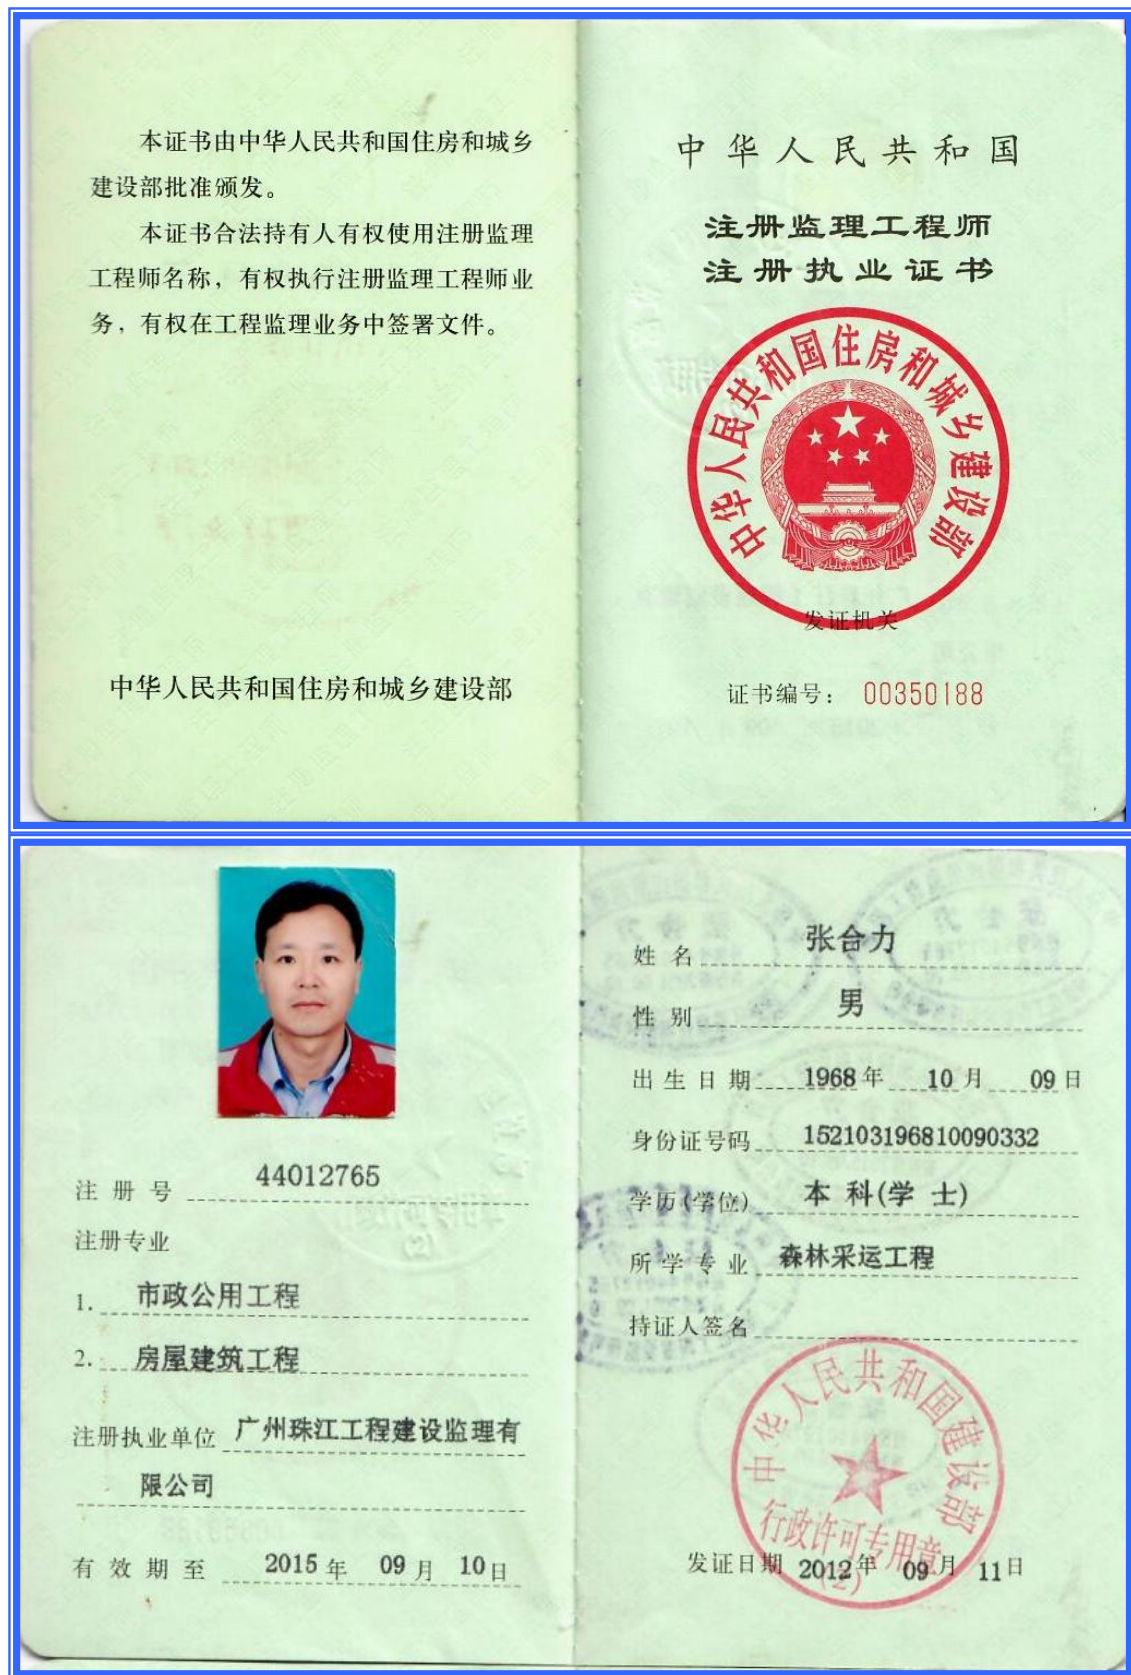 本证书由中华人民共和国住房和城乡
建设部批准颁发。
本证书合法持有人有权使用注册监理
工程师名称，有权执行注册监理工程师业
务，有权在工程监理业务中签署文件。
中华人民共和国住房和城乡建设部
中华人民共和国
注册监理工程师
注册执业证书
中华人民共和国住房和城乡建设部
发证机关
证书编号： 00350188
注册号 44012765
注册专业
1. 市政公用工程
2. 房屋建筑工程
注册执业单位 广州珠江工程建设监理有
限公司
有效期至 2015年 09月 10日
姓名 张合力
性别 男
出生日期 1968年 10月 09日
身份证号码 152103196810090332
学历(学位) 本科(学士)
所学专业 森林采运工程
持证人签名
中华人民共和国建设部
行政许可专用章
(2)
发证日期 2012年 09月 11日